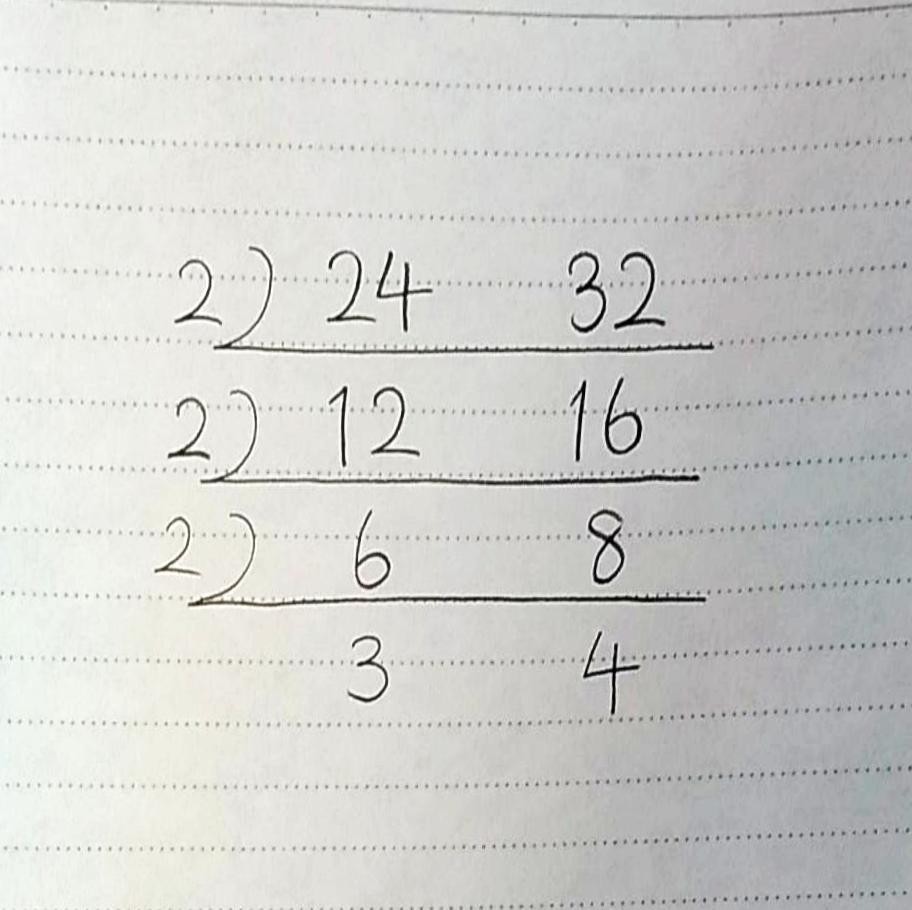 2) 24 32
2) 12 16
2) 6 8
3 4